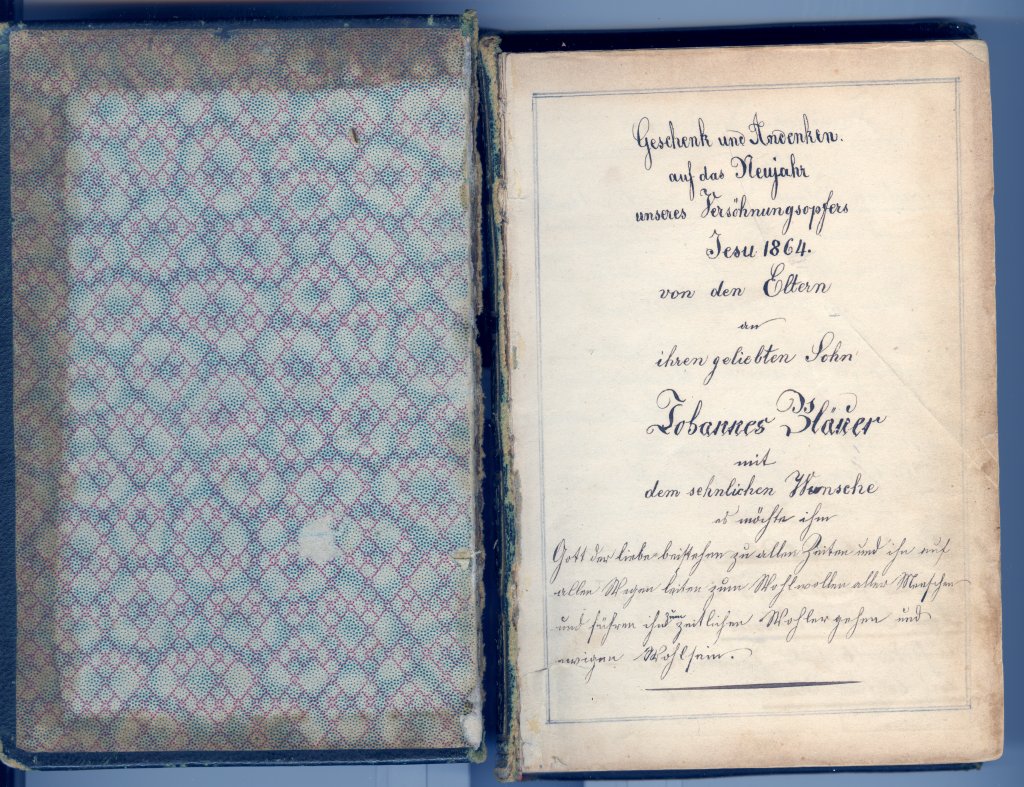 Geschenk und Andenken.
auf das Neujahr
unseres Versöhnungsopfers
Jesu 1864.
von den Eltern
an
ihren geliebten Sohn
Johannes Bläuer
mit
dem sehnlichen Wunsche
es möchte ihm
Gott der liebe beistehen zu allen Zeiten und ihn auf
allen Wegen leiten zum Wohlwollen aller Menschen
und führen ihn zum zeitlichen Wohlergehen und
ewigen Wohlsein.